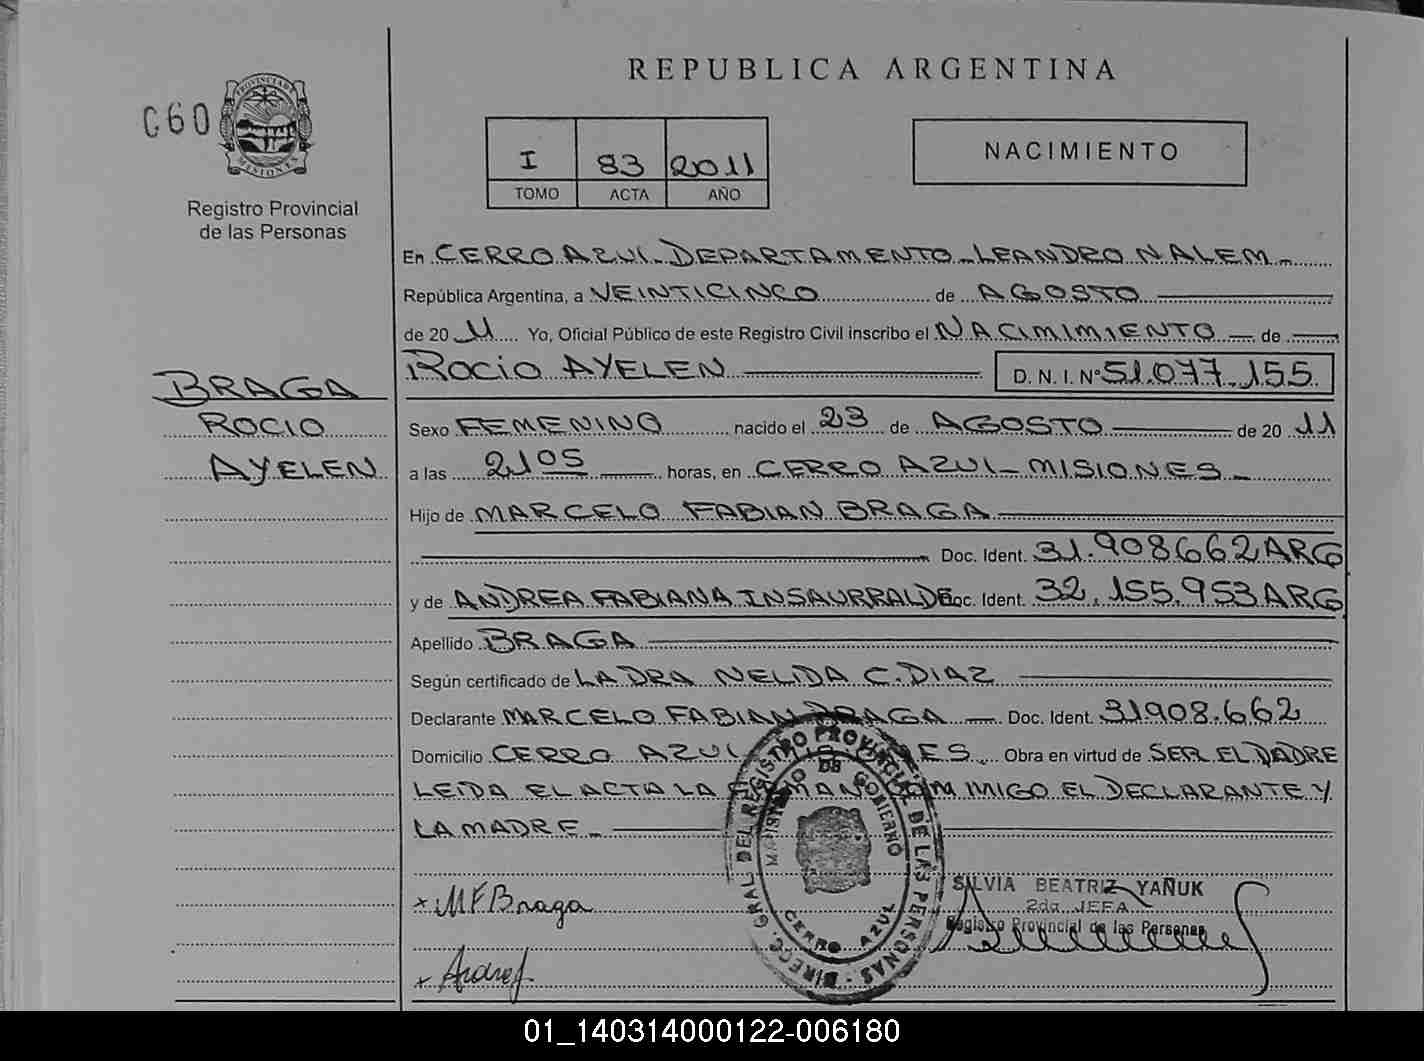 REPUBLICA ARGENTINA
060
PROVINCIA DE
MISIONES
Registro Provincial
de las Personas
I 83 2011
TOMO ACTA AÑO
NACIMIENTO
En CERRO AZUL DEPARTAMENTO LEANDRO N ALEM
República Argentina, a VEINTICINCO de AGOSTO
de 2011 Yo, Oficial Público de este Registro Civil inscribo el NACIMIMIENTO de
ROCIO AYELEN D. N. I. Nº 51.077.155
BRAGA
ROCIO
AYELEN
Sexo FEMENINO nacido el 23 de AGOSTO de 2011
a las 2105 horas, en CERRO AZUL - MISIONES
Hijo de MARCELO FABIAN BRAGA
Doc. Ident. 31.908662 ARG
y de ANDREA FABIANA INSAURRALDE Doc. Ident. 32.155.953 ARG
Apellido BRAGA
Según certificado de LA DRA NELIDA C. DIAZ
Declarante MARCELO FABIAN BRAGA Doc. Ident. 31908.662
Domicilio CERRO AZUL Obra en virtud de SER EL PADRE
LEIDA EL ACTA LA MIGO EL DECLARANTE Y
LA MADRE
DIRECC. GRAL DEL REGISTRO PROVINCIAL DE LAS PERSONAS
MINISTERIO DE GOBIERNO
CERRO AZUL
MFBraga
SILVIA BEATRIZ YAÑUK
2da JEFA
Registro Provincial de las Personas
01_140314000122-006180